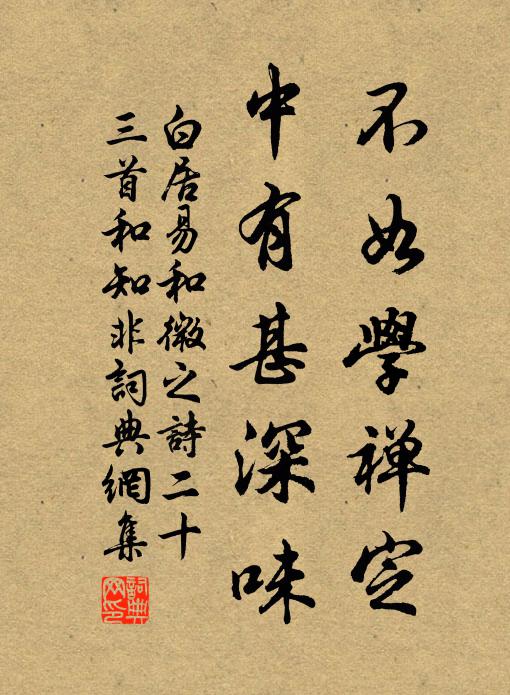 不如學禪定
中有甚深味
白居易和微之詩二十
三首和知非詞典網集
詞典网印